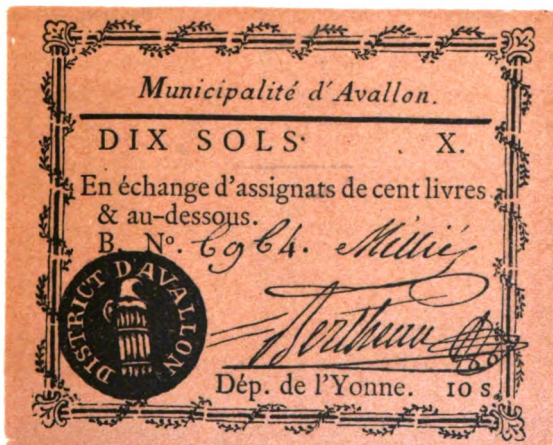 Municipalité d'Avallon.
DIX SOLS. X.
En échange d'assignats de cent livres
& au-dessous.
B. Nº. 6964. Millié
DISTRICT D'AVALLON
Bertheau
Dép. de l'Yonne. 10 s.